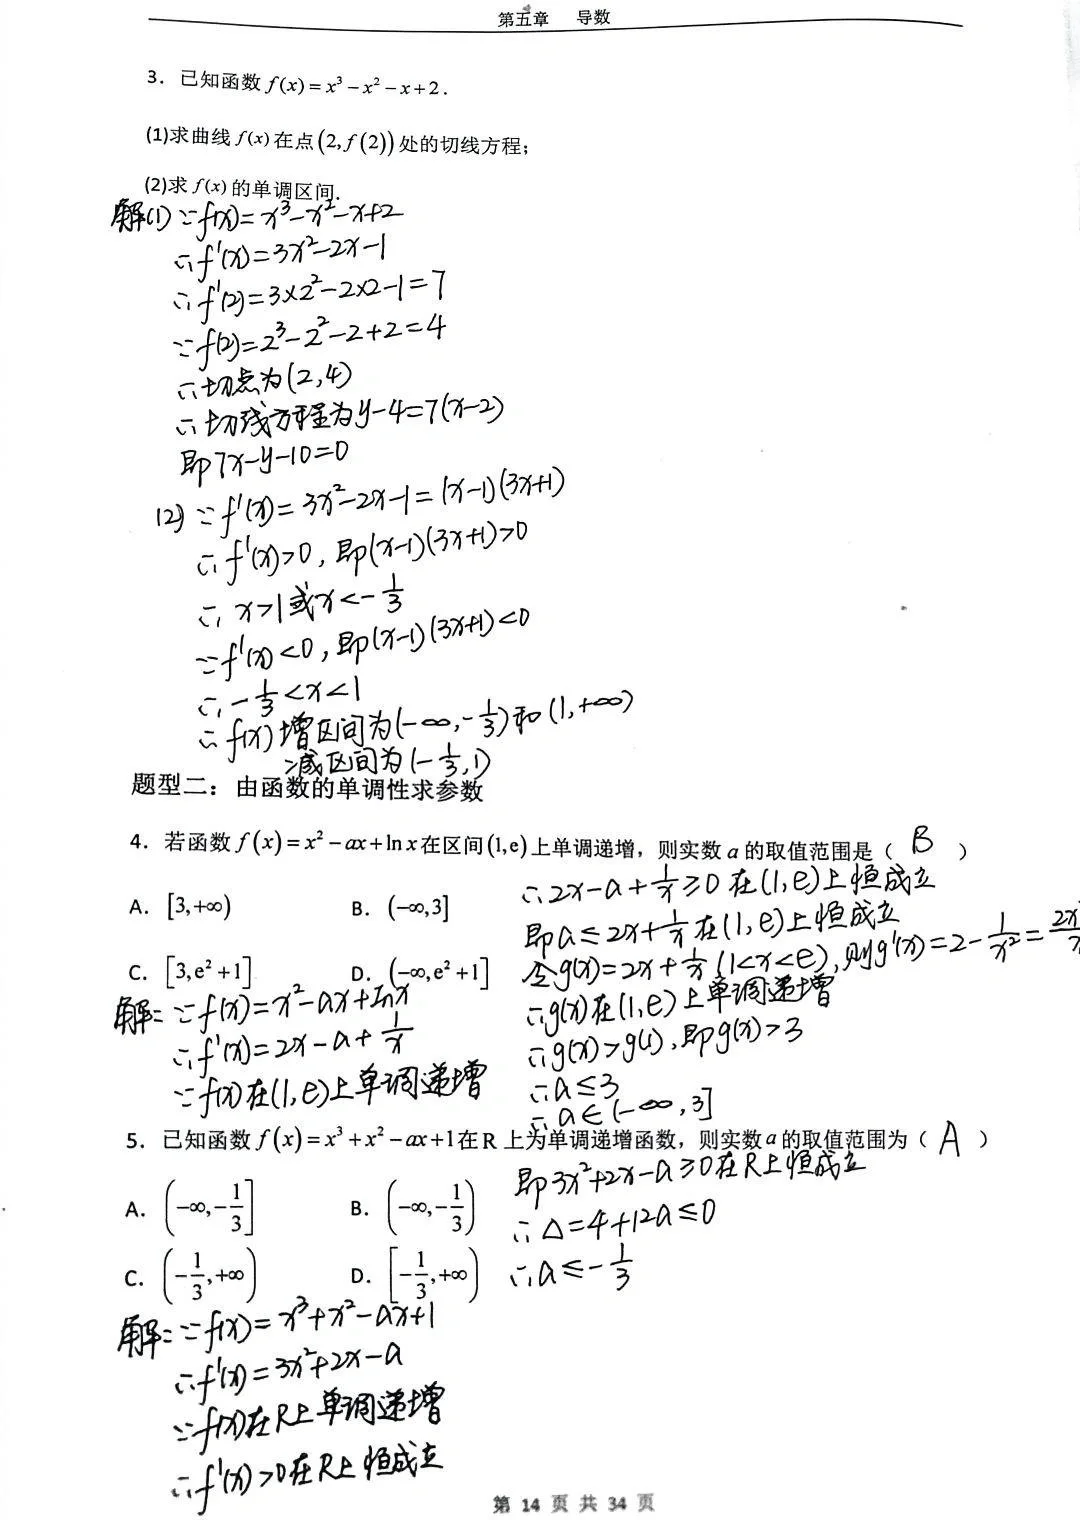 第五章 导数
3．已知函数 f(x)=x³-x²-x+2．
(1)求曲线 f(x) 在点(2,f(2))处的切线方程；
(2)求 f(x) 的单调区间.
解(1) ∵f(x)=x³-x²-x+2
∴f'(x)=3x²-2x-1
∴f'(2)=3×2²-2×2-1=7
∵f(2)=2³-2²-2+2=4
∴切点为(2,4)
∴切线方程为y-4=7(x-2)
即7x-y-10=0
(2) ∵f'(x)=3x²-2x-1=(x-1)(3x+1)
∴f'(x)>0,即(x-1)(3x+1)>0
∴x>1或x<-1/3
∵f'(x)<0,即(x-1)(3x+1)<0
∴-1/3<x<1
∴f(x)增区间为(-∞,-1/3)和(1,+∞)
减区间为(-1/3,1)
题型二：由函数的单调性求参数
4．若函数 f(x)=x²-ax+ln x 在区间(1,e)上单调递增，则实数 a 的取值范围是（ B ）
A．[3,+∞)
B．(-∞,3]
C．[3,e²+1]
D．(-∞,e²+1]
解:∵f(x)=x²-ax+lnx
∴f'(x)=2x-a+1/x
∵f(x)在(1,e)上单调递增
∴2x-a+1/x≥0在(1,e)上恒成立
即a≤2x+1/x在(1,e)上恒成立
令g(x)=2x+1/x(1<x<e),则g'(x)=2-1/x²=
∴g(x)在(1,e)上单调递增
∴g(x)>g(1),即g(x)>3
∴a≤3
∴a∈(-∞,3]
5．已知函数 f(x)=x³+x²-ax+1在 R 上为单调递增函数，则实数 a 的取值范围为（ A ）
A．(-∞,-1/3]
B．(-∞,-1/3)
C．(-1/3,+∞)
D．[-1/3,+∞)
解:∵f(x)=x³+x²-ax+1
∴f'(x)=3x²+2x-a
∵f(x)在R上单调递增
∴f'(x)>0在R上恒成立
即3x²+2x-a≥0在R上恒成立
∴Δ=4+12a≤0
∴a≤-1/3
第 14 页 共 34 页